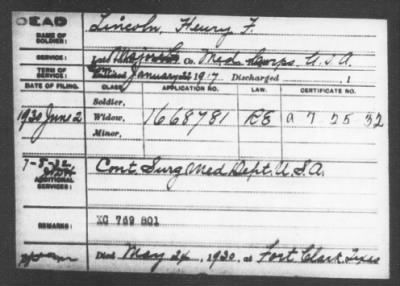 DEAD
NAME OF SOLDIER:
Lincoln, Henry F.
SERVICE:
Major Co. Med. Corps. U.S.A.
TERM OF SERVICE:
Enlisted January 1917 Discharged , 1
DATE OF FILING. CLASS. APPLICATION NO. LAW. CERTIFICATE NO.
Soldier,
1930 June 2 Widow, 1668781 a 7 25 32
Minor,
7-8-32
ADDITIONAL SERVICES:
Cont. Surg Med Dept. U.S.A.
REMARKS:
XC 769 801
Died May 24, 1930, at Fort Clark Texas